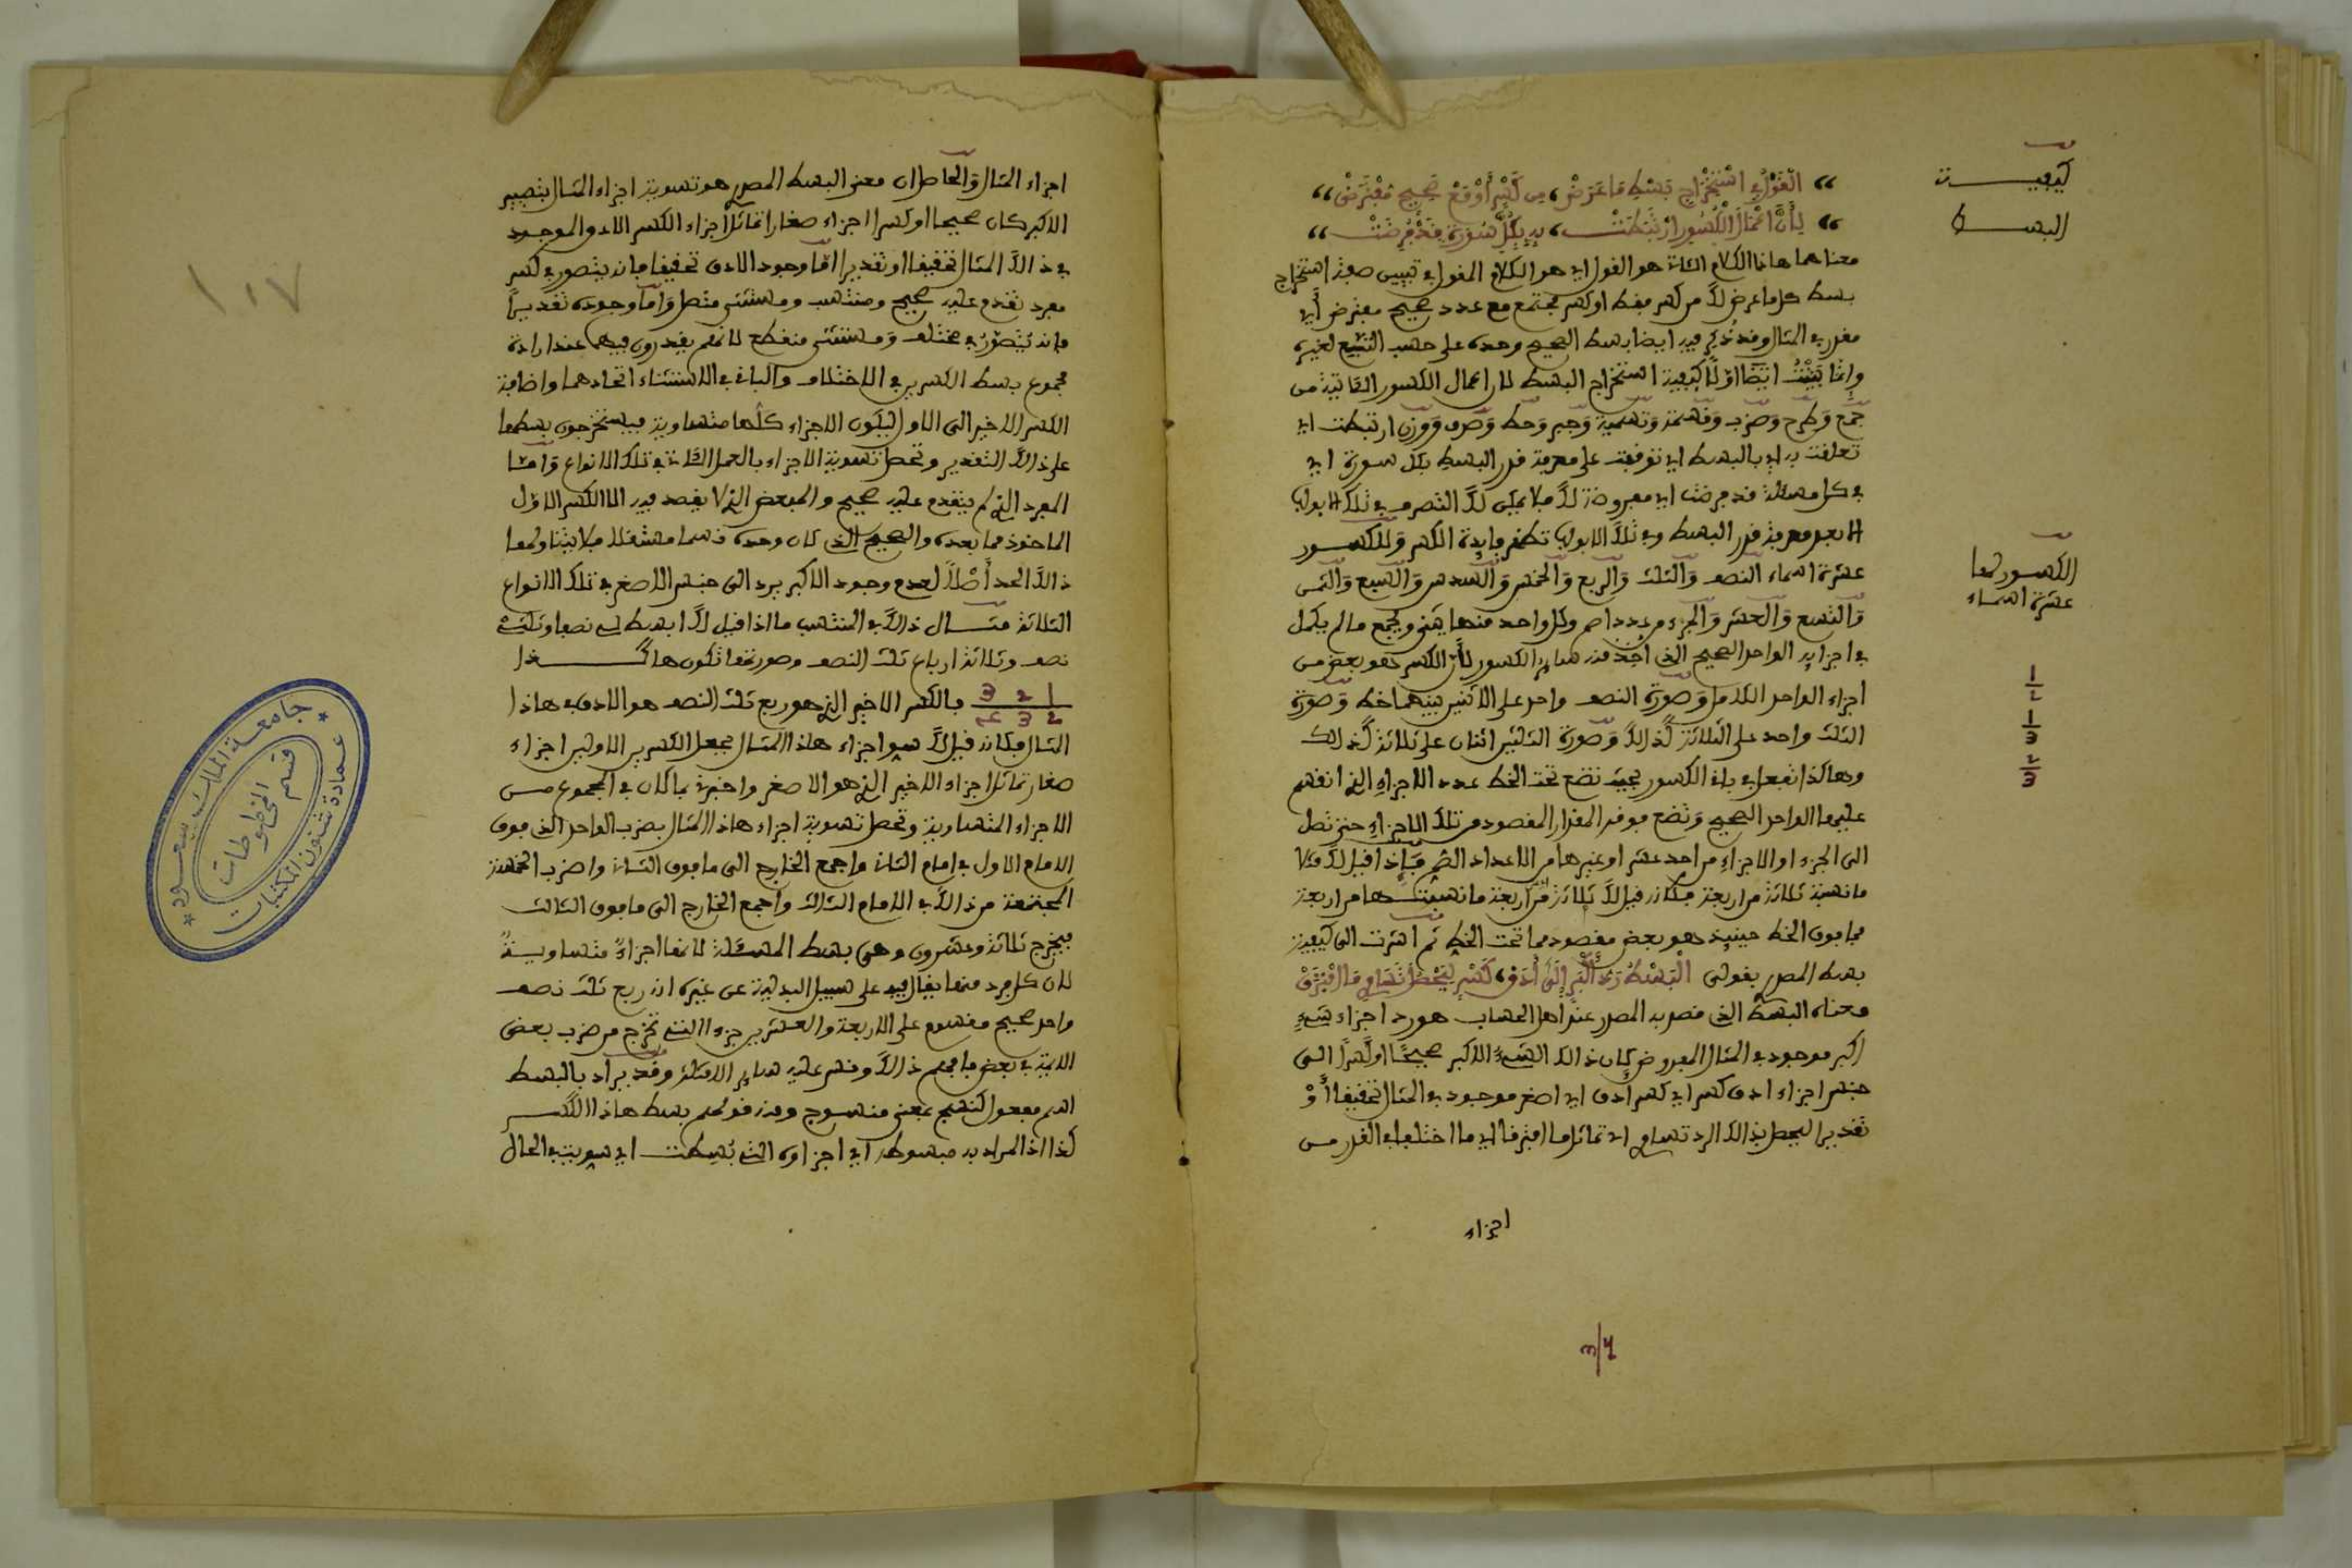 كيفيـــــة
البســـط
القول في استخراج بسط ما عرض، من كسر أو مع صحيح مفترض
لأن أعمال الكسور ارتبطت، به بكل سورة قد فرضت
معناهما هاذا الكلام الثاني هو القول اي هو الكلام المقول في تبيين صفة استخراج
بسط كل ما عرض لك من كسر فقط او كسر مجتمع مع عدد صحيح مفترض أي
مقرر في المثال وقد نذكر فيه ايضا بسط الصحيح وحده على حسب التبع لغيره
وانما بينت ايضا اولا كيفية استخراج البسط لان اعمال الكسور الثانية من
جمع وطرح وضرب وقسمة وتسمية وجبر وحط وصرف ووزن ارتبطت اي
تعلقت به اي بالبسط اي توقفت على معرفة قدر البسط بكل سورة اي
في كل مسئلة قد فرضت اي مفروضة لك فلا يمكن لك التصرف في تلك الابواب
الا بعد معرفة قدر البسط وفي تلك الابواب تظهر فايدة الكسر وللكســور
الكسور لها
عشرة اسماء
عشرة اسماء النصف والثلث والربع والخمس والسدس والسبع والثمن
والتسع والعشر والجزء من عدد اصم وكل واحد منها يثنى ويجمع ما لم يكمل
في اجزايه الواحد الصحيح الذي اخذ منه ساير الكسور لأن الكسر هو بعض من
اجزاء الواحد الكامل وصورة النصف واحد على الاثنين بينهما خط وصورة
الثلث واحد على الثلاثة كذالك وصورة الثلثين اثنان على ثلاثة كذالك
1/2
1/3
2/3
وهاكذا تفعل في باقي الكسور بحيث تضع تحت الخط عدد الاجزاء التي انقسم
عليها الواحد الصحيح وتضع فوقه المقدار المقصود من تلك الاجزاء حتى تصل
الى الجزء او الاجزاء من احد عشر او غيرها من الاعداد الصم فإذا قيل لك مثلا
ما نسبة ثلاثة من اربعة فكانه قيل لك ثلاثة من اربعة ما نسبتــها من اربعة
فما فوق الخط حينيذ هو بعض مقصود مما تحت الخط ثم اشرت الى كيفية
بسط المصدر بقولى البسط رد اكبر إلى أدنى، كسر ليحصل تساوي ما افترق
ومعناه البسط الذي قصد به المصدر عند اهل الحساب هو رد اجزاء شيء
اكبر موجود في المثال المفروض كان ذالك الشيء الاكبر صحيحا او كسرا الــى
جنس اجزاء ادنى كسر اي كسر ادنى اي اصغر موجود في المثال تحقيقا أو
تقديرا ليحصل بذالك الرد تساوي اي تماثل ما افترق اي ما اختلف في القدر مــن
اجزاء
١١٧
اجزاء المثال والحاصل ان معنى البسط المصدر هو تسوية اجزاء المثال بتصيير
الاكبر كان صحيحا او كسرا اجزاء صغارا تماثل اجزاء الكسر الادنى الموجود
في ذالك المثال تحقيقا او تقديرا اما وجود الادنى تحقيقا فانه يتصور في كسر
مفرد تقدم عليه صحيح ومنتسب ومستثنى متصل واما وجوده تقديرا
فانه يتصور في مختلف ومستثنى منقطع لانهم يقدرون فيهما عند ارادة
مجموع بسط الكسرين في الاختلاف والباقي في الاستثناء اتحادهما واضافة
الكسر الاخير الى الاول لتكون الاجزاء كلها متساوية فيستخرجون بسطها
على ذالك التقدير وتحصل تسوية الاجزاء بالعمل الثاني في تلك الانواع وامــا
المفرد الذي لم يتقدم عليه صحيح والمبعض الذي لا يقصد فيه الا الكسر الاول
الماخوذ مما بعده والصحيح الذي كان وحده قسما مستقلا فلا يتناولها
ذالك الحد أصلا لعدم وجود الاكبر يرد الى جنس الاصغر في تلك الانواع
الثلاثة مثــال ذالك في المنتسب ما اذا قيل لك ابسط لي نصفا وثلثي
نصف وثلاثة ارباع ثلث النصف وصورتها تكون هاكــــذا
1 2 3 فالكسر الاخير الذي هو ربع ثلث النصف هو الادنى في هاذا
2 3 4
المثال فكانه قيل لك سو اجزاء هاذا المثال بجعل الكسرين الاولين اجزاء
صغار تماثل اجزاء الاخير الذي هو الاصغر واخبرني بما كان في المجموع مــن
الاجزاء المتساوية وتحصل تسوية اجزاء هاذا المثال بضرب الواحد الذي فوق
الامام الاول في امام الثاني واجمع الخارج الى ما فوق الثاني واضرب الخمسة
المجتمعة من ذالك في الامام الثالث واجمع الخارج الى ما فوق الثالث
فيخرج ثلاثة وعشرون وهي بسط المسئلة لانها اجزاء متساويــة
لان كل فرد منها يقال فيه على سبيل البدلية عن غيره انه ربع ثلث نصف
واحد صحيح مقسوم على الاربعة والعشرين جزءا التي تخرج من ضرب بعض
الائمة في بعض فافهم ذالك وقس عليه ساير الامثلة وقد يراد بالبسط
اسم مفعول كنسج بمعنى منسوج ومنه قولهم بسط هاذا الكســر
كذا اذ المراد به مبسوطه اي اجزاؤه التي بسطت اي سويت في الحال
جامعة الملك سعود
عمادة شئون المكتبات
قسم المخطوطات